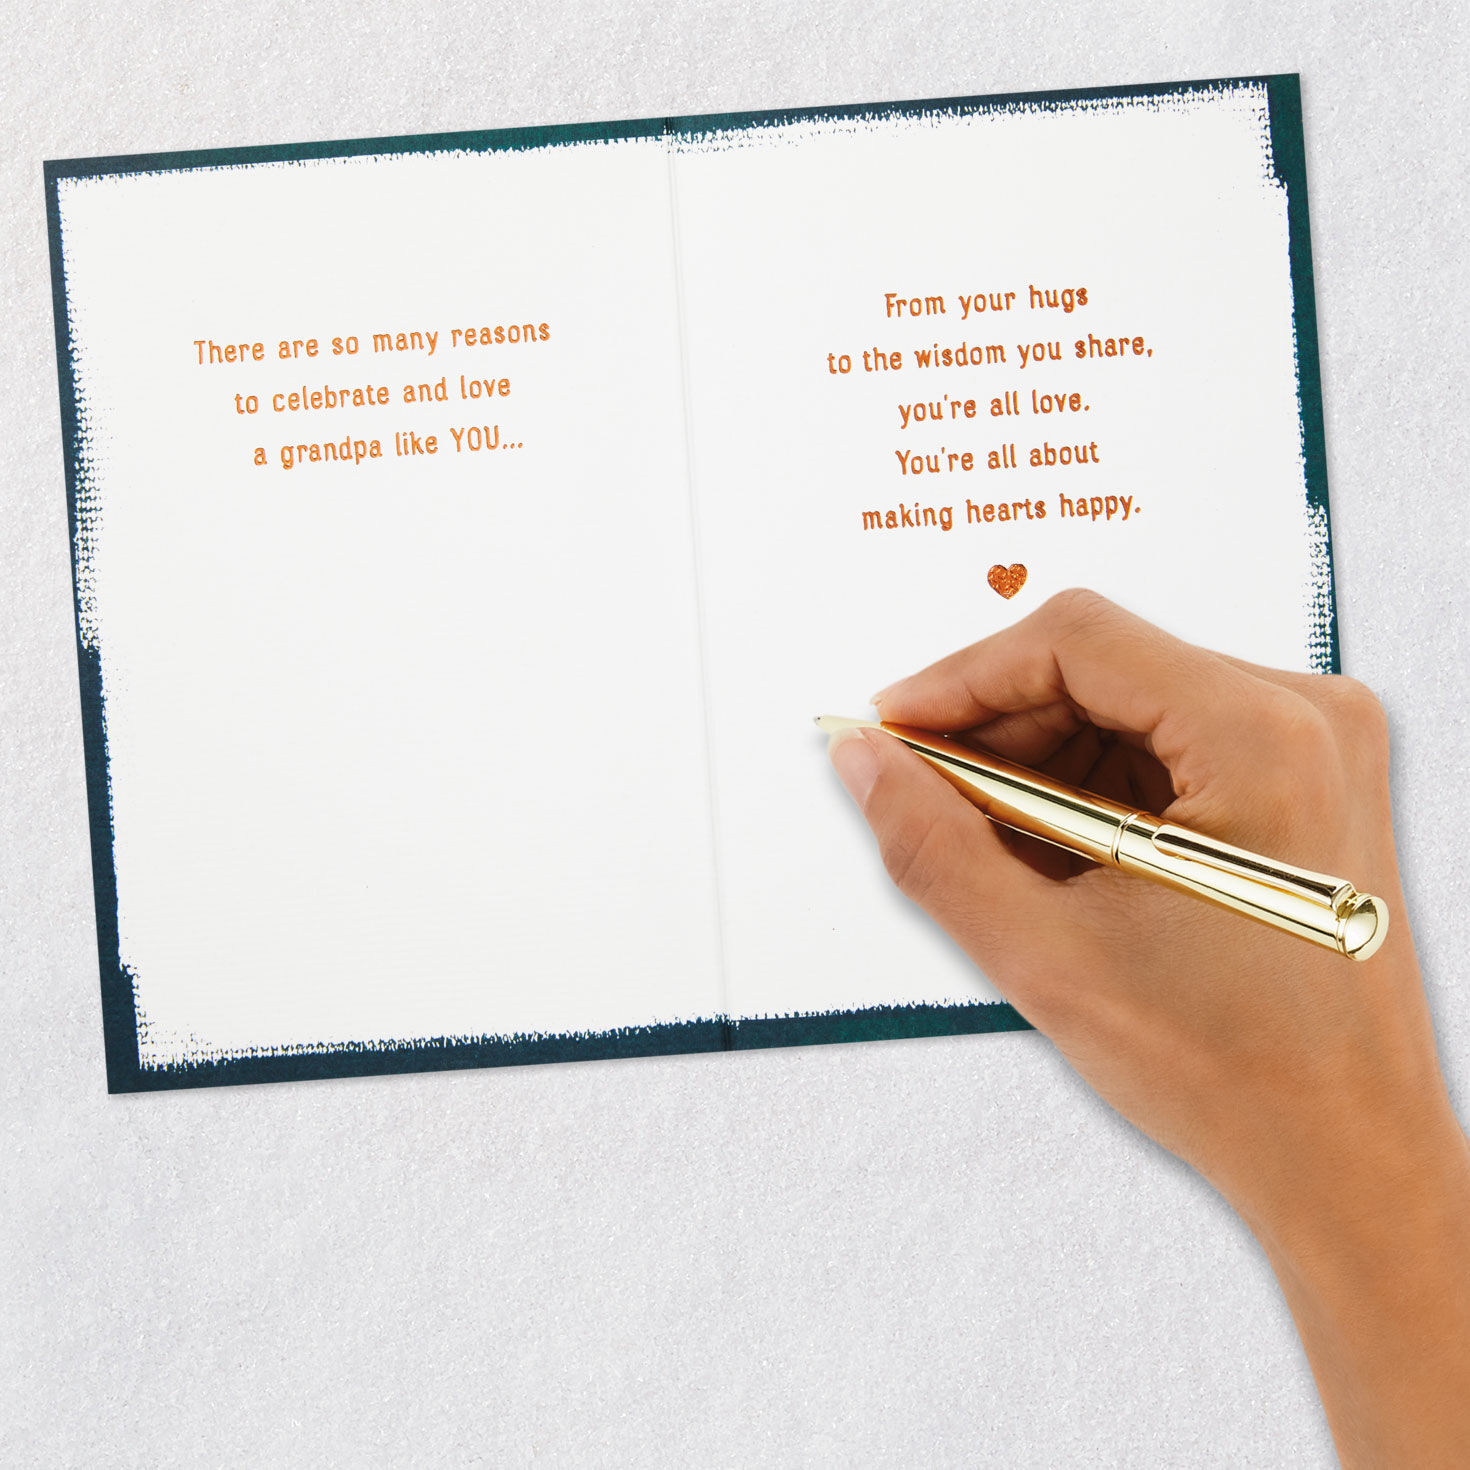 There are so many reasons
to celebrate and love
a grandpa like YOU...
From your hugs
to the wisdom you share,
you're all love.
You're all about
making hearts happy.